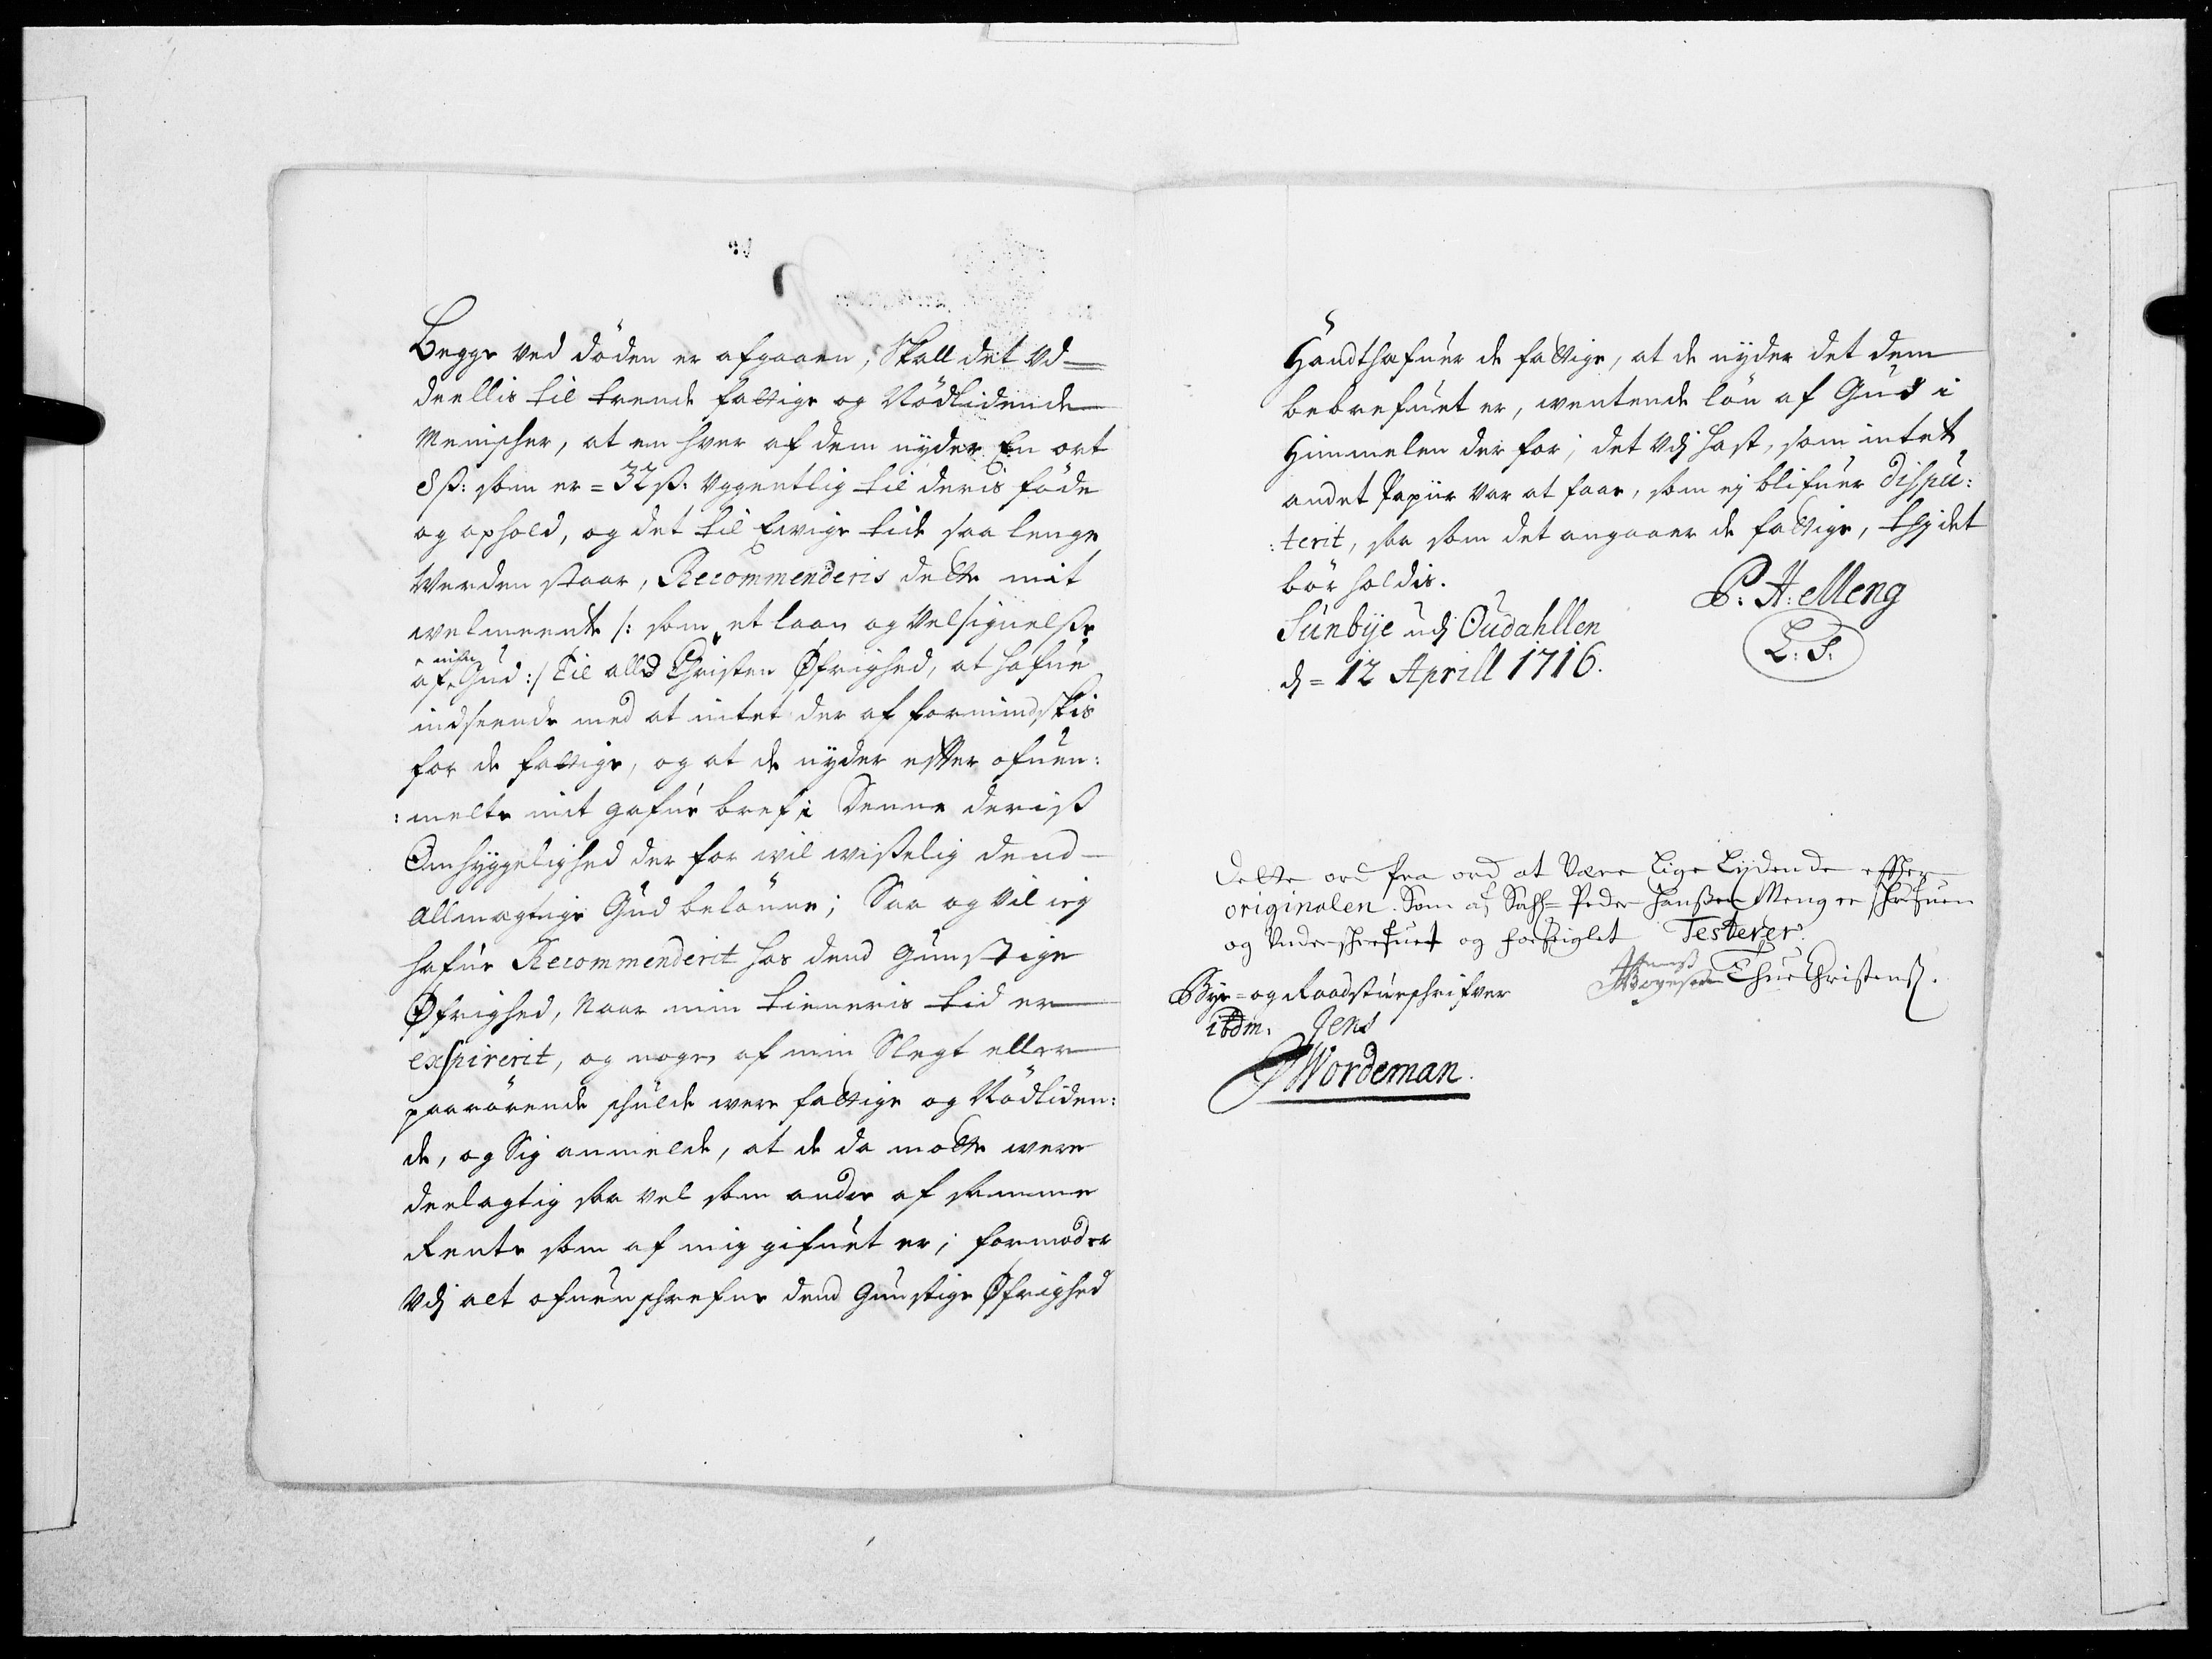 Begge ved döden er afgaaen, Skall det vd=
deellis til trende fattige og Nödlidende
Menischer, at en hver af dem nyder En ort
8 ß: som er = 32 ß. Vggentlig til deris föde
og ophold, og det til Ewige tide saa lenge
Verden staar, Recommenderis dette mit
welmeente /: som et laan og Velsignelße
af min Gud :/ til alld Christen Øfrighed, at hafue
indseende med at intet der af formindskis
for de fattige, og at de nyder effter ofuen:
:melte mit gafue bref; Denne deriß
Omhyggelighed der for wil wißelig dend
allmegtige Gud belönne; Saa og vil ieg
hafue Recommenderit hos dend gunstige
Øfrighed, Naar min tieneris tid er
exspirerit, og noger af min Slegt eller
paarörende schulde were fattige og Nödliden:
de, og Sig anmelde, at de da motte were
deelagtig saa vel som andre af samme
Rente som af mig gifuet er; formoder
Vdj alt ofuenschrefne dend gunstige Øfrighed
Handthafuer de fattige, at de nyder det dem
bebrefuet er, wentende lön af Gud i
Himmelen der for; det Vdj Hast, som intet
andet Papiir var at faae, som ej blifuer dispu:
:terit, saa som det angaaer de fattige, thj det
bör holdis.
P: H: Meng
Sunbÿe udj Oudahllen
L: S:
d = 12 Aprill 1716.
Dette ord fra ord at være lige lydende effter
originalen. Som af Sahl= Peder Hanßen Meng er schrefuen
og Underschrefuet og forsiglet Testerer
Thue Christens.
Bye= og Raadstueschrifver
ibdm. Jens
Wordeman.